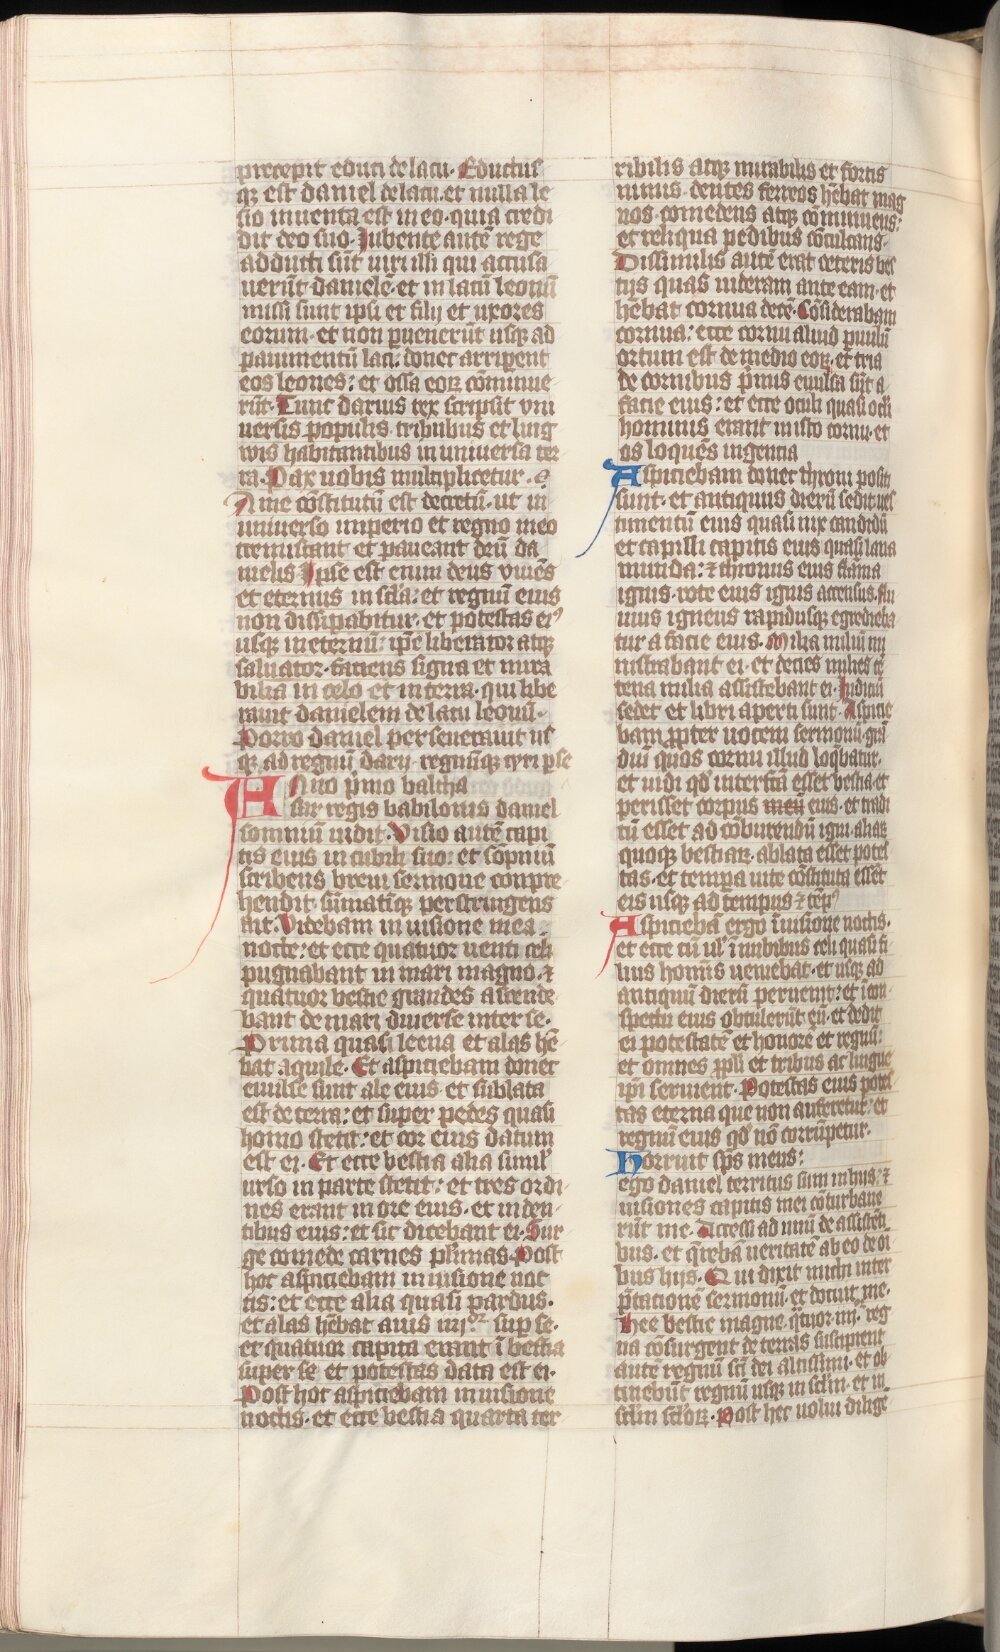 precepit educi de lacu. Eductus
q̢ est daniel de lacu. et nulla le
sio inuenta est in eo. quia credi
dit deo suo. Iubente autē rege
adducti sūt uiri illi qui accusa
uerūt danielē. et in lacū leonū
missi sunt ipsi et filij et uxores
eorum. et non puenerūt usq̢ ad
pauimentū laci. donec arriperent
eos leones: et ossa eoꝝ cōminue
rūt. Tunc darius rex scripsit vni
uersis populis. tribubus et ling
wis habitantibus in uniuersa ter
ra. Pax uobis multiplicetur. A
A me cōstitutū est decretū. ut in
uniuerso imperio et regno meo
tremiscant et paueant deū da
nielis Ipse est enim deus viuēs
et eternus in scła: et regnū eius
non dissipabitur. et potestas ei9
usq̢ in eternū. ipē liberator atq̢
saluator. faciens signa et mira
bilia in celo et in terra. qui libe
rauit danielem de lacu leonū.
Porro daniel perseuerauit us
q̢ ad regnū darij. regnūq̢ cyri pse
Anno p̄mo baltha
sar regis babilonis daniel
somniū uidit. Visio autē capi
tis eius in cubili suo: et sōpniū
scribens breui sermone conpre
hendit. sūmatiq̢ perstringens
ait. Videbam in uisione mea
nocte: et ecce quatuor uenti celi
pugnabant in mari magno. ⁊
quatuor bestie grandes ascende
bant de mari diuerse inter se.
Prima quasi leena et alas hē
bat aquile. Et aspiciebam donec
euulse sunt ale eius et sublata
est de terra: et super pedes quasi
homo stetit: et cor eius datum
est ei. Et ecce bestia alia simil'
urso in parte stetit: et tres ordi
nes erant in ore eius. et in den
tibus eius: et sic dicebant ei. Sur
ge comede carnes plīmas. Post
hoc aspiciebam in uisione noc
tis: et ecce alia quasi pardus.
et alas hēbat auis iiij.or sup se.
et quatuor capita erant ī bestia
super se et potestas data est ei.
Post hoc aspiciebam in uisione
noctis. et ecce bestia quarta ter
ribilis atq̢ mirabilis et fortis
nimis. dentes ferreos hēbat mag
nos. comedens atq̢ cōminuens:
et reliqua pedibus cōculcans.
Dissimilis autē erat ceteris bes
tijs quas uideram ante eam. et
hēbat cornua decē. Cōsiderabam
cornua: ecce cornu aliud paruulū
ortum est de medio eoꝝ. et tria
de cornibus p̄mis euulsa sūt a
facie eius: et ecce oculi quasi oc̄li
hominis erant in isto cornu. et
os loquēs ingentia
Aspiciebam donec throni positi
sunt. et antiquus dierū sedit. ues
timentū eius quasi nix candidū
et capilli capitis eius quasi lana
munda: ⁊ thronus eius flāma
ignis. rote eius ignis accensus. flu
uius igneus rapidusq̢ egredieba
tur a facie eius. Milia miliū mi
nistrabant ei. et decies milies cē
tena milia assistebant ei. Iudiciū
sedet et libri aperti sunt. Aspicie
bam ꝓpter uocem sermonū grā
diū quos cornu illud loq̄batur.
et uidi qđ interfcā esset bestia. et
perisset corpus meū eius. et tradi
tū esset ad cōburendū igni. aliaꝝ
quoq̢ bestiaꝝ. ablata esset potes
tas. et tempora uite cōstituta essēt
eis usq̢ ad tempus ⁊ tēp9
Aspiciebā ergo ī uisione noctis.
et ecce cū ī nubibus celi quasi fi
lius homīs ueniebat. et usq̢ ad
antiquū dierū peruenit: et ī con
spectu eius obtulerūt eū. et dedit
ei potestatē et honorē et regnū:
et omnes ppli et tribus ac lingue
ipi seruient. Potestas eius potes
tas eterna que non auferetur. et
regnū eius qđ nō corrūpetur.
Horruit sps meus:
ego daniel territus sum in hijs. ⁊
uisiones capitis mei cōturbaue
rūt me. Accessi ad unū de assistēti
bus. et q̄rebā ueritatē ab eo de oī
bus hijs. Qui dixit michi inter
p̄tationē sermonū. et docuit me.
Hee bestie magne. q̄tuor. iiij. reg
na cōsurgent de terra. suscipient
autē regnū sc̄i dei altissimi. et ob
tinebūt regnū usq̢ in sclm. et in
sclm scloꝝ. Post hec uolui dilige